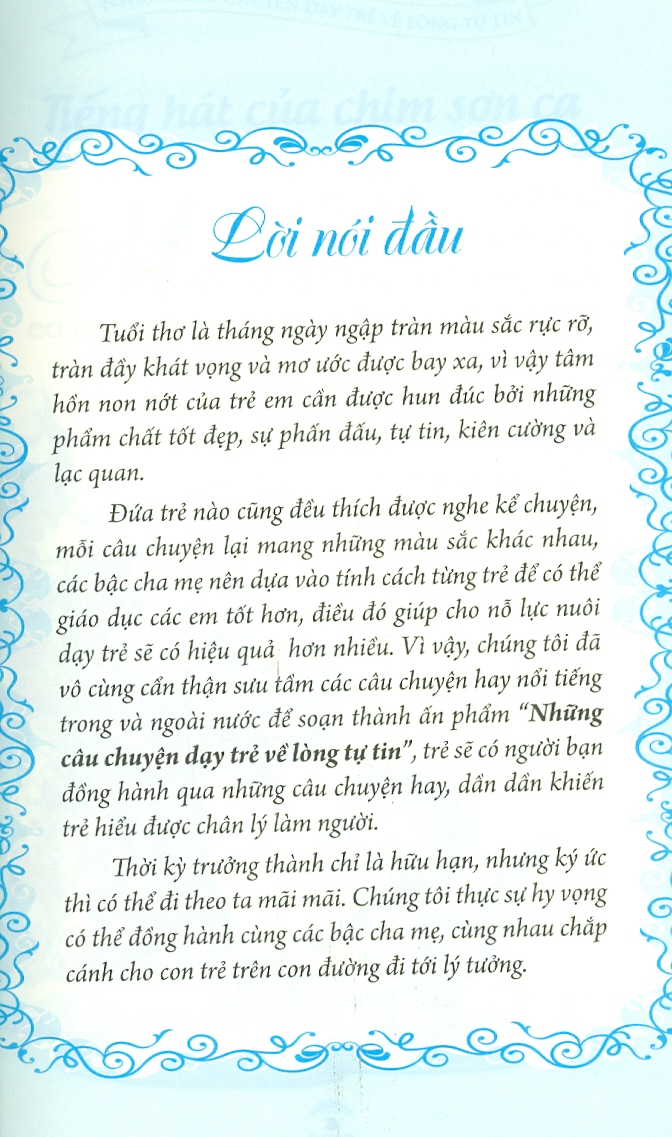 CHUYỆN DẠY TRẺ VỀ LÒNG TỰ TIN
Tiếng hát của chim sơn ca
Lời nói đầu
Tuổi thơ là tháng ngày ngập tràn màu sắc rực rỡ,
tràn đầy khát vọng và mơ ước được bay xa, vì vậy tâm
hồn non nớt của trẻ em cần được hun đúc bởi những
phẩm chất tốt đẹp, sự phấn đấu, tự tin, kiên cường và
lạc quan.
Đứa trẻ nào cũng đều thích được nghe kể chuyện,
mỗi câu chuyện lại mang những màu sắc khác nhau,
các bậc cha mẹ nên dựa vào tính cách từng trẻ để có thể
giáo dục các em tốt hơn, điều đó giúp cho nỗ lực nuôi
dạy trẻ sẽ có hiệu quả hơn nhiều. Vì vậy, chúng tôi đã
vô cùng cẩn thận sưu tầm các câu chuyện hay nổi tiếng
trong và ngoài nước để soạn thành ấn phẩm “Những
câu chuyện dạy trẻ về lòng tự tin”, trẻ sẽ có người bạn
đồng hành qua những câu chuyện hay, dần dần khiến
trẻ hiểu được chân lý làm người.
Thời kỳ trưởng thành chỉ là hữu hạn, nhưng ký ức
thì có thể đi theo ta mãi mãi. Chúng tôi thực sự hy vọng
có thể đồng hành cùng các bậc cha mẹ, cùng nhau chắp
cánh cho con trẻ trên con đường đi tới lý tưởng.